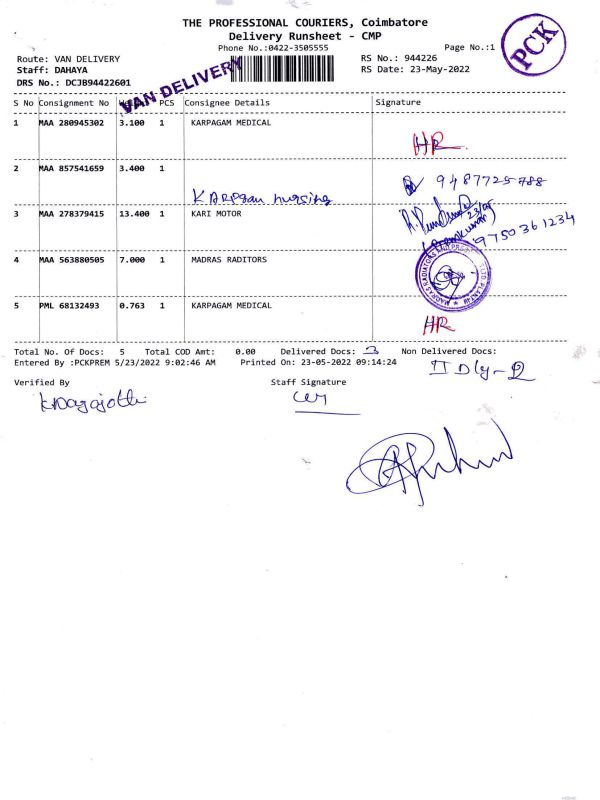 THE PROFESSIONAL COURIERS, Coimbatore
Delivery Runsheet - CMP
Phone No.:0422-3505555
Page No.:1
PCK
Route: VAN DELIVERY
RS No.: 944226
Staff: DAHAYA
RS Date: 23-May-2022
DRS No.: DCJB94422601
VAN DELIVERY
S No Consignment No PCS Consignee Details Signature
1 MAA 280945302 3.100 1 KARPAGAM MEDICAL
HR
2 MAA 857541659 3.400 1
9487725788
nursing
3 MAA 278379415 13.400 1 KARI MOTOR
23/05
9750361234
4 MAA 563880505 7.000 1 MADRAS RADITORS
MADRAS RADIATORS
5 PML 68132493 0.763 1 KARPAGAM MEDICAL
HR
Total No. Of Docs: 5 Total COD Amt: 0.00 Delivered Docs: 3 Non Delivered Docs:
Entered By :PCKPREM 5/23/2022 9:02:46 AM Printed On: 23-05-2022 09:14:24
II Dly - 2
Verified By Staff Signature